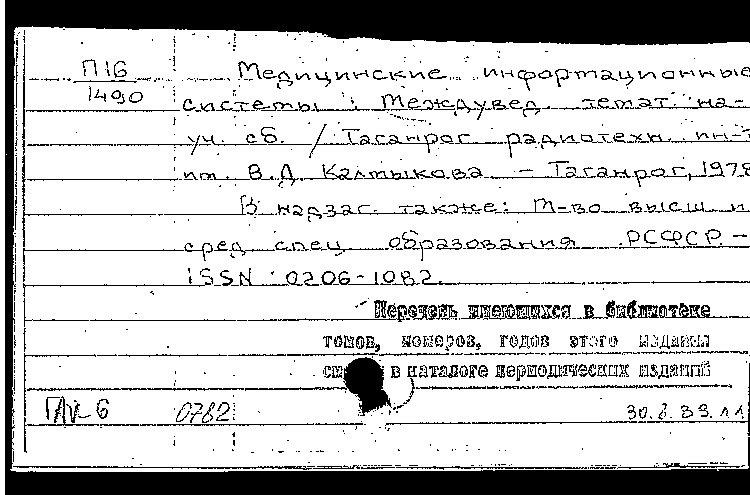 П16
1490
Медицинские информационные
системы : Междувед. темат. на-
уч. сб. / Таганрог. радиотехн. ин-т
им. В.Д. Калмыкова. – Таганрог, 1978
В надзаг. также: М-во высш и
сред спец. образования РСФСР. –
ISSN 0206-1082.
Перечень имеющихся в библиотеке
томов, номеров, годов этого издания
в каталоге периодических изданий
6 0782 30.6.33.11